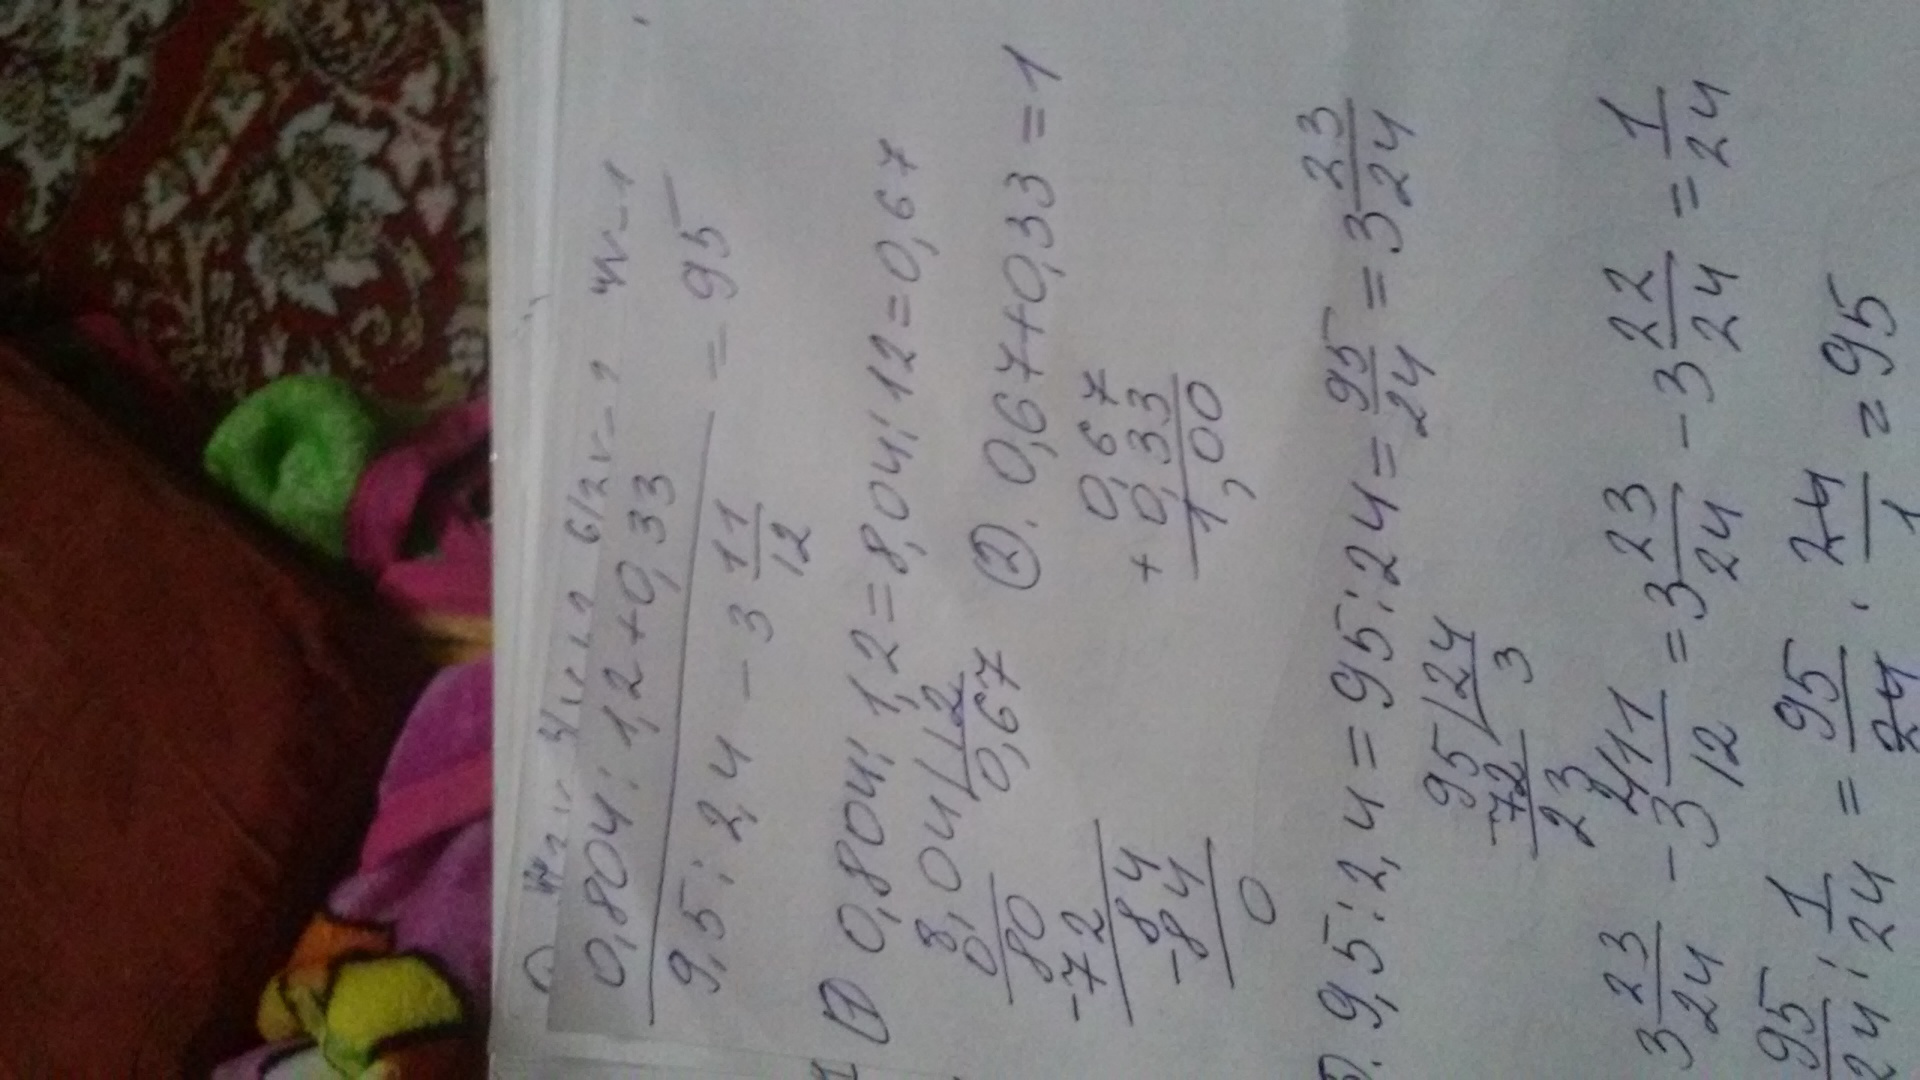 0,804 : 1,2 + 0,33
9,5 : 2,4 - 3 11/12 = 95
1 ① 0,804 : 1,2 = 8,04 : 12 = 0,67
8,04 | 12
0 0,67
80
-72
84
-84
0
② . 0,67 + 0,33 = 1
0,67
+ 0,33
1,00
9,5 : 2,4 = 95 : 24 = 95/24 = 3 23/24
95 | 24
-72 3
23
3 23/24 - 3 11/12 = 3 23/24 - 3 22/24 = 1/24
95/24 : 1/24 = 95/24 · 24/1 = 95